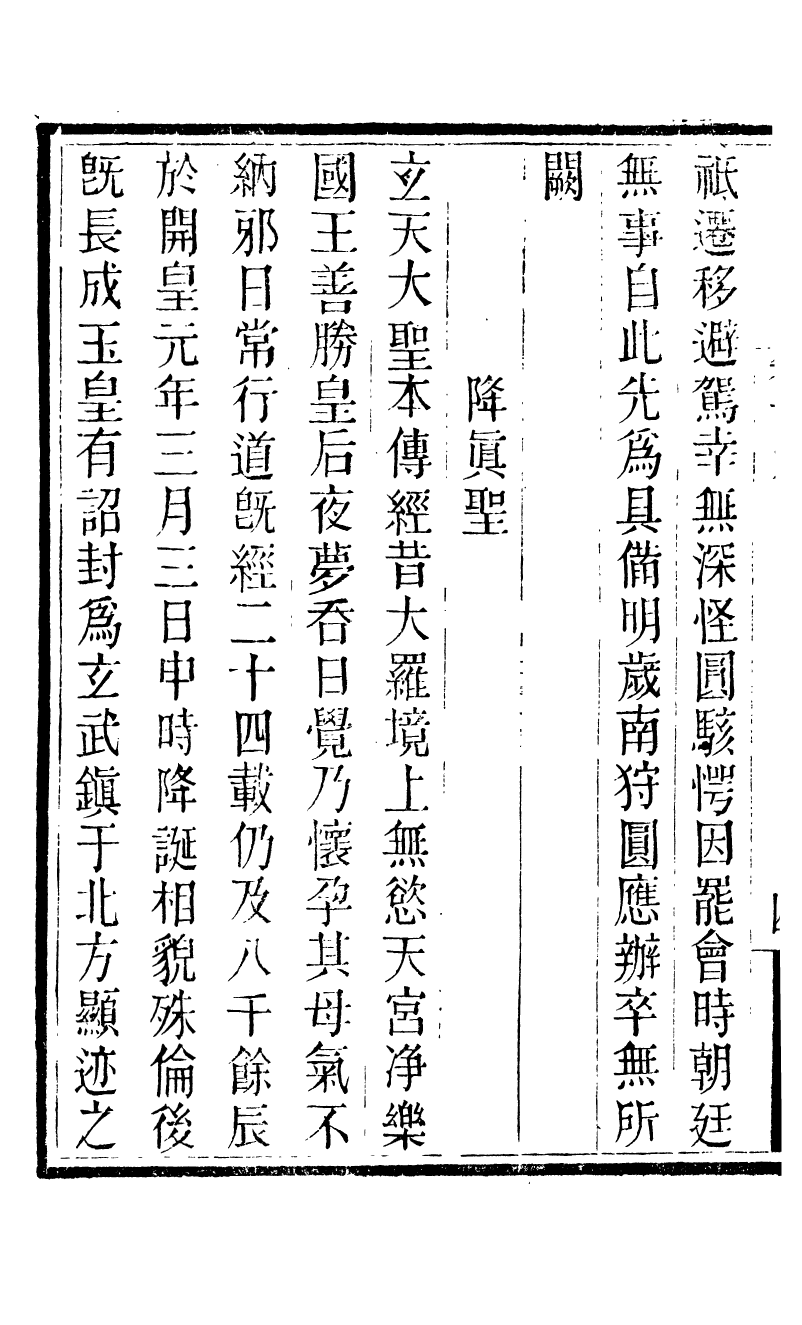 祇遷移避駕幸無深怪圓駭愕因罷會時朝廷
無事自此先爲具備明歲南狩圓應辦卒無所
闕
降眞聖
玄天大聖本傳經昔大羅境上無慾天宮净樂
國王善勝皇后夜夢吞日覺乃懷孕其母氣不
納邪日常行道旣經二十四載仍及八千餘辰
於開皇元年三月三日申時降誕相貌殊倫後
旣長成玉皇有詔封爲玄武鎭于北方顯迹之